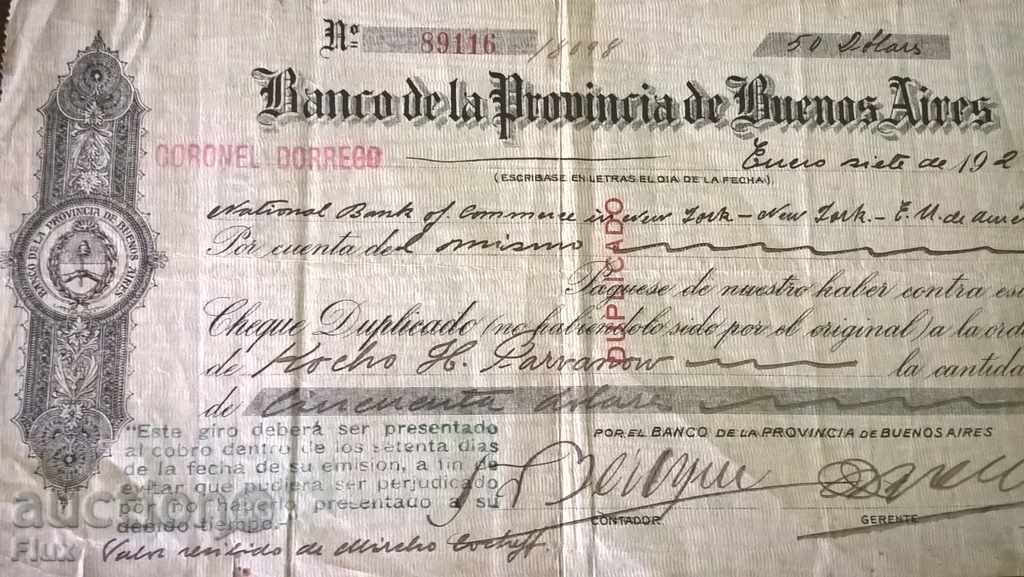 Nº 89116 18098 50 Dólars
Banco de la Provincia de Buenos Aires
CORONEL DORREGO
Enero siete de 192
(ESCRIBASE EN LETRAS EL DIA DE LA FECHA)
National Bank of Commerce in New York - New York - E. U. de Amé
Por cuenta del mismo
DUPLICADO
Páguese de nuestro haber contra es
Cheque Duplicado (no habiéndolo sido por el original) a la ord
de Kocho H. Parvanow la cantida
de Cincuenta dólars
"Este giro deberá ser presentado
al cobro dentro de los setenta días
de la fecha de su emisión, a fin de
evitar que pudiera ser perjudicado
por no haberlo presentado a su
debido tiempo."
POR EL BANCO DE LA PROVINCIA DE BUENOS AIRES
CONTADOR
GERENTE
Valor recibido de Mircho
BANCO DE LA PROVINCIA DE BUENOS AIRES
Flux